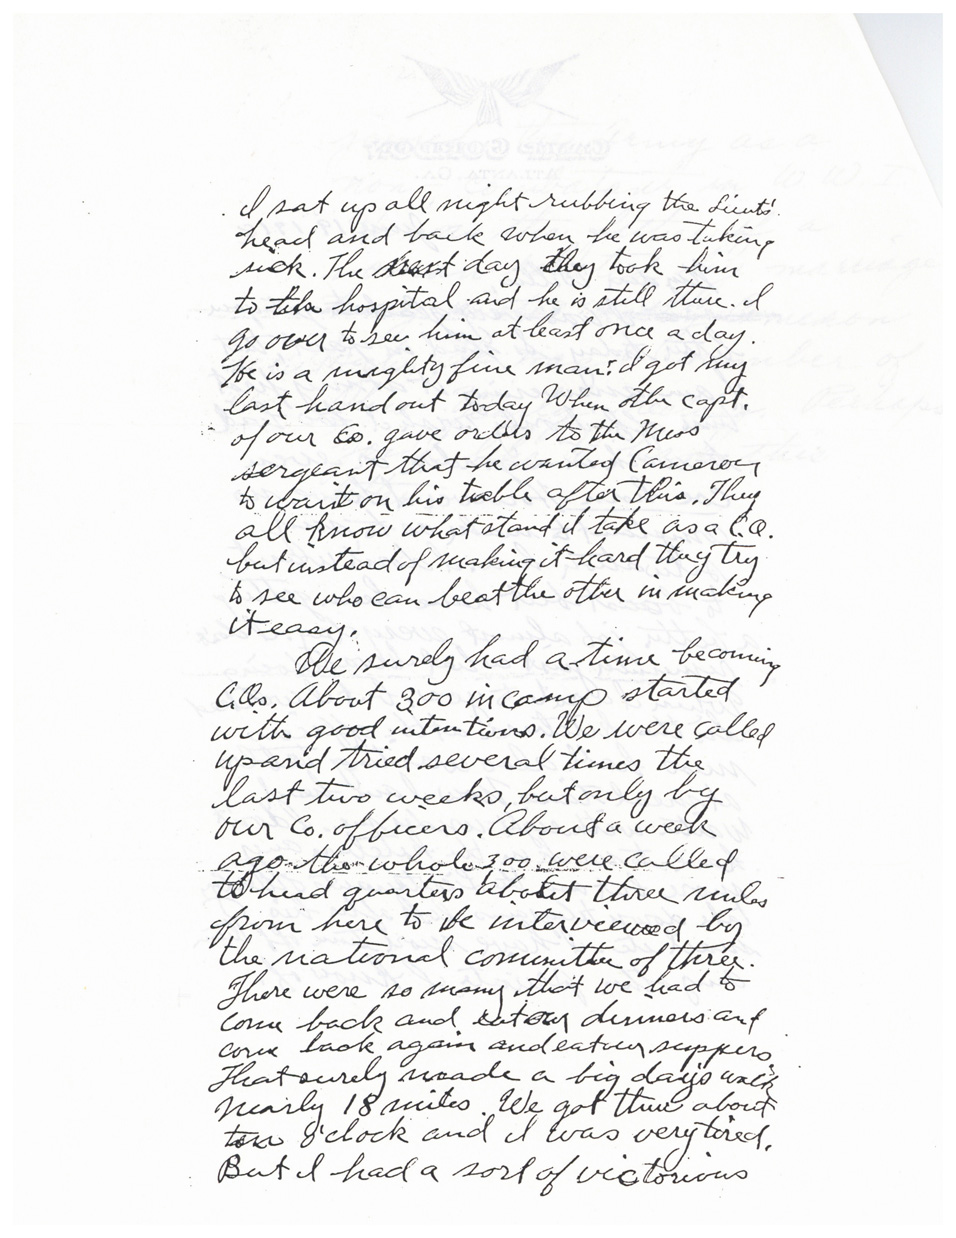 I sat up all night rubbing the Lieuts'.
head and back when he was taking
sick. The next day they took him
to the hospital and he is still there. I
go over to see him at least once a day.
He is a mighty fine man. I got my
last hand out today When the capt.
of our Co. gave orders to the Mess
sergeant that he wanted Cameron
to wait on his table after this. They
all know what stand I take as a C.O.
but instead of making it hard they try
to see who can beat the other in making
it easy.
We surely had a time becoming
C.Os. About 300 in camp started
with good intentions. We were called
up and tried several times the
last two weeks, but only by
our Co. officers. About a week
ago the whole 300 were called
to head quarters about three miles
from here to be interviewed by
the national committee of three.
There were so many that we had to
come back and eat our dinners and
come back again and eat our suppers.
That surely made a big days walk
nearly 18 miles. We got thru about
ten o'clock and I was very tired.
But I had a sort of victorious